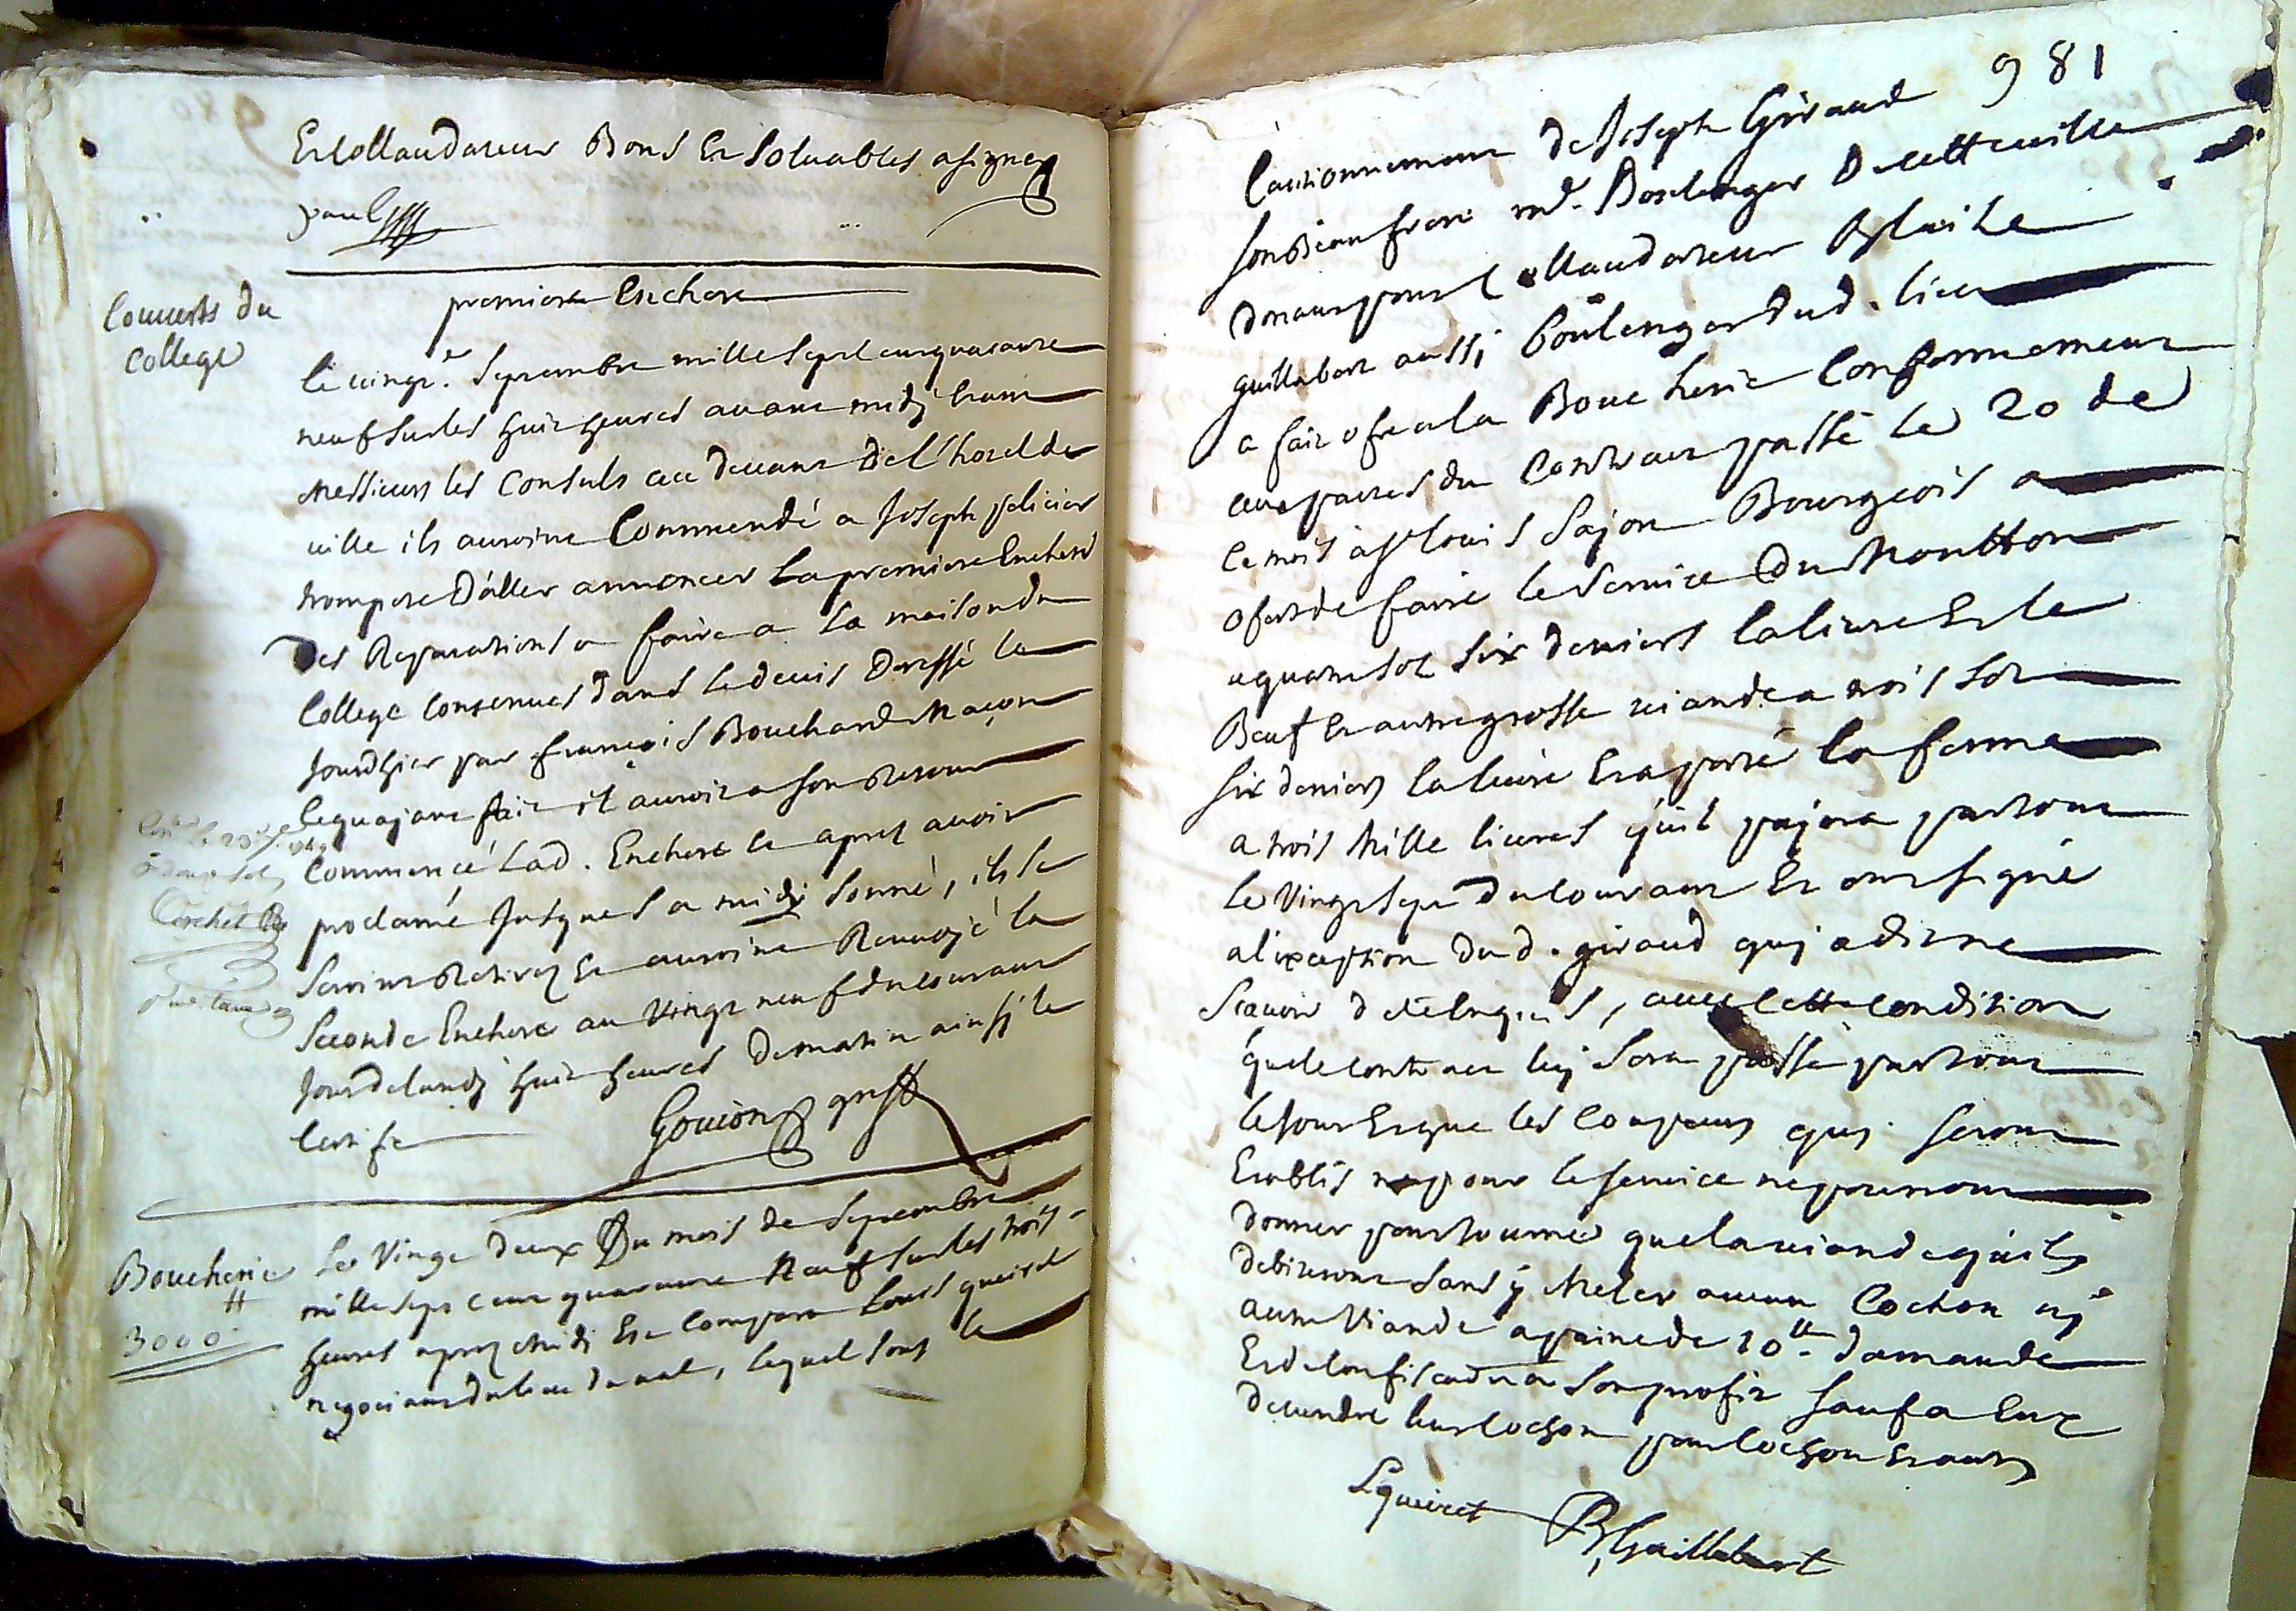 Et collaudateur Bons et solvables a signé
paul
premiere Enchere
Couverts du
College
Le vingt.e Septembre mille sept cens quarante
neuf sur les huit heures avant midi Etant
Messieurs les Consuls au devant de l'hotel de
ville ils auroint Commendé a Joseph pelicier
trompete D'aller annoncer La premiere Enchere
Des Reparations a faire a La maison du
College contenues dans le devis Dressé le
Jourdhier par françois Bouchard Maçon
Ce quajant fait il auroit a son Retour
Commencé Lad. Enchere et apres avoir
proclamé Jusques a midi sonné, ils se
seroint Retirez Et auroint Renvojé la
Seconde Enchere au Vingt neuf du courant
Jour de lundi huit heures De matin ainsi le
Certifie
Gouion greff
Boucherie
3000
Le Vingt deux Du mois de Septembre
mille sept cent quarante Neuf sur les trois
heures aprez Midi Est Comparu Louis queirel
negociant du lieu du , lequel sous le
981
Cautionnement De Joseph Giraud
son Beau frere md. Boulenger De cette ville
Donant pour Collaudateur Blaise
guillabert aussi Boulenger dud. lieu
a fait ofre a la Boucherie Conformement
aux pactes du Contrat passé le 20 de
ce mois a Sr Louis Sajon Bourgeois a
ofert de faire le Service Du Moutton
a quatre sol six deniers la livre Et le
Beuf Et autre grosse viande a trois sol
six deniers la livre Et a porté la ferme
a trois Mille livres qu'il pajera partout
le Vingt sept du courant Et ont signé
a l'exception Dud. giraud quj a dit ne
scavoir de ce Enquis, avec cette condition
que le contrat luj sera passé partout
le Jour Et que les Coupeurs quj seront
Etablis pour le service ne pourront
donner pour tourne que la viande quils
debiteront sans ÿ Meler aucun Cochon nj
autre Viande a peine de 10tt. d'amande
Et de confiscation a son profit sauf a Eux
de vendre leur cochon pour cochon Et autre
L queirel
B, Guillabert